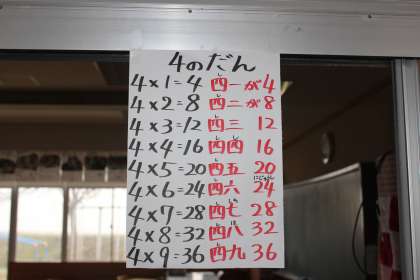 4のだん
4×1=4 四一が4
4×2=8 四二が8
4×3=12 四三 12
4×4=16 四四 16
4×5=20 四五 20
4×6=24 四六 24
4×7=28 四七 28
4×8=32 四八 32
4×9=36 四九 36